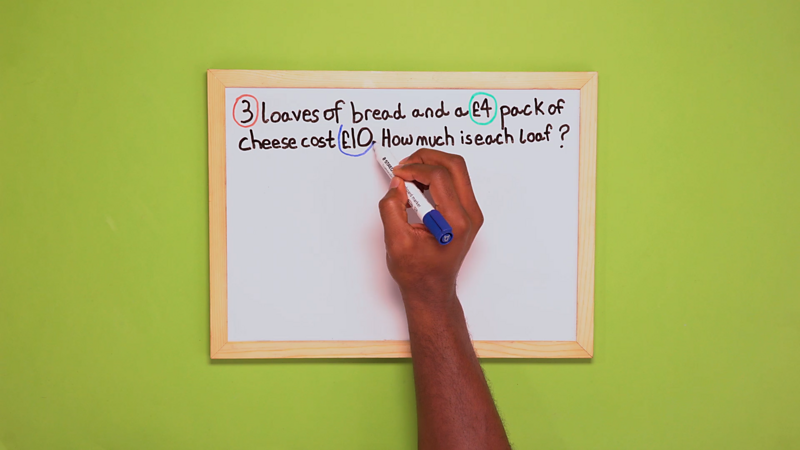 3 loaves of bread and a £4 pack of
cheese cost £10. How much is each loaf ?